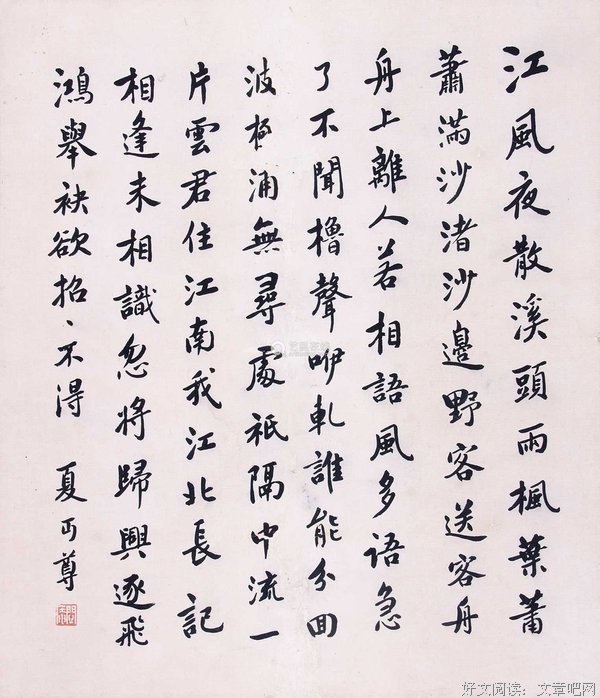 江風夜散溪頭雨楓葉蕭
蕭滿沙渚沙邊野客送客舟
舟上離人若相語風多語急
了不聞櫓聲咿軋誰能分回
波極浦無尋處祇隔中流一
片雲君住江南我江北長記
相逢未相識忽將歸興逐飛
鴻舉袂欲招、不得
夏丏尊
好文阅读：文章吧网